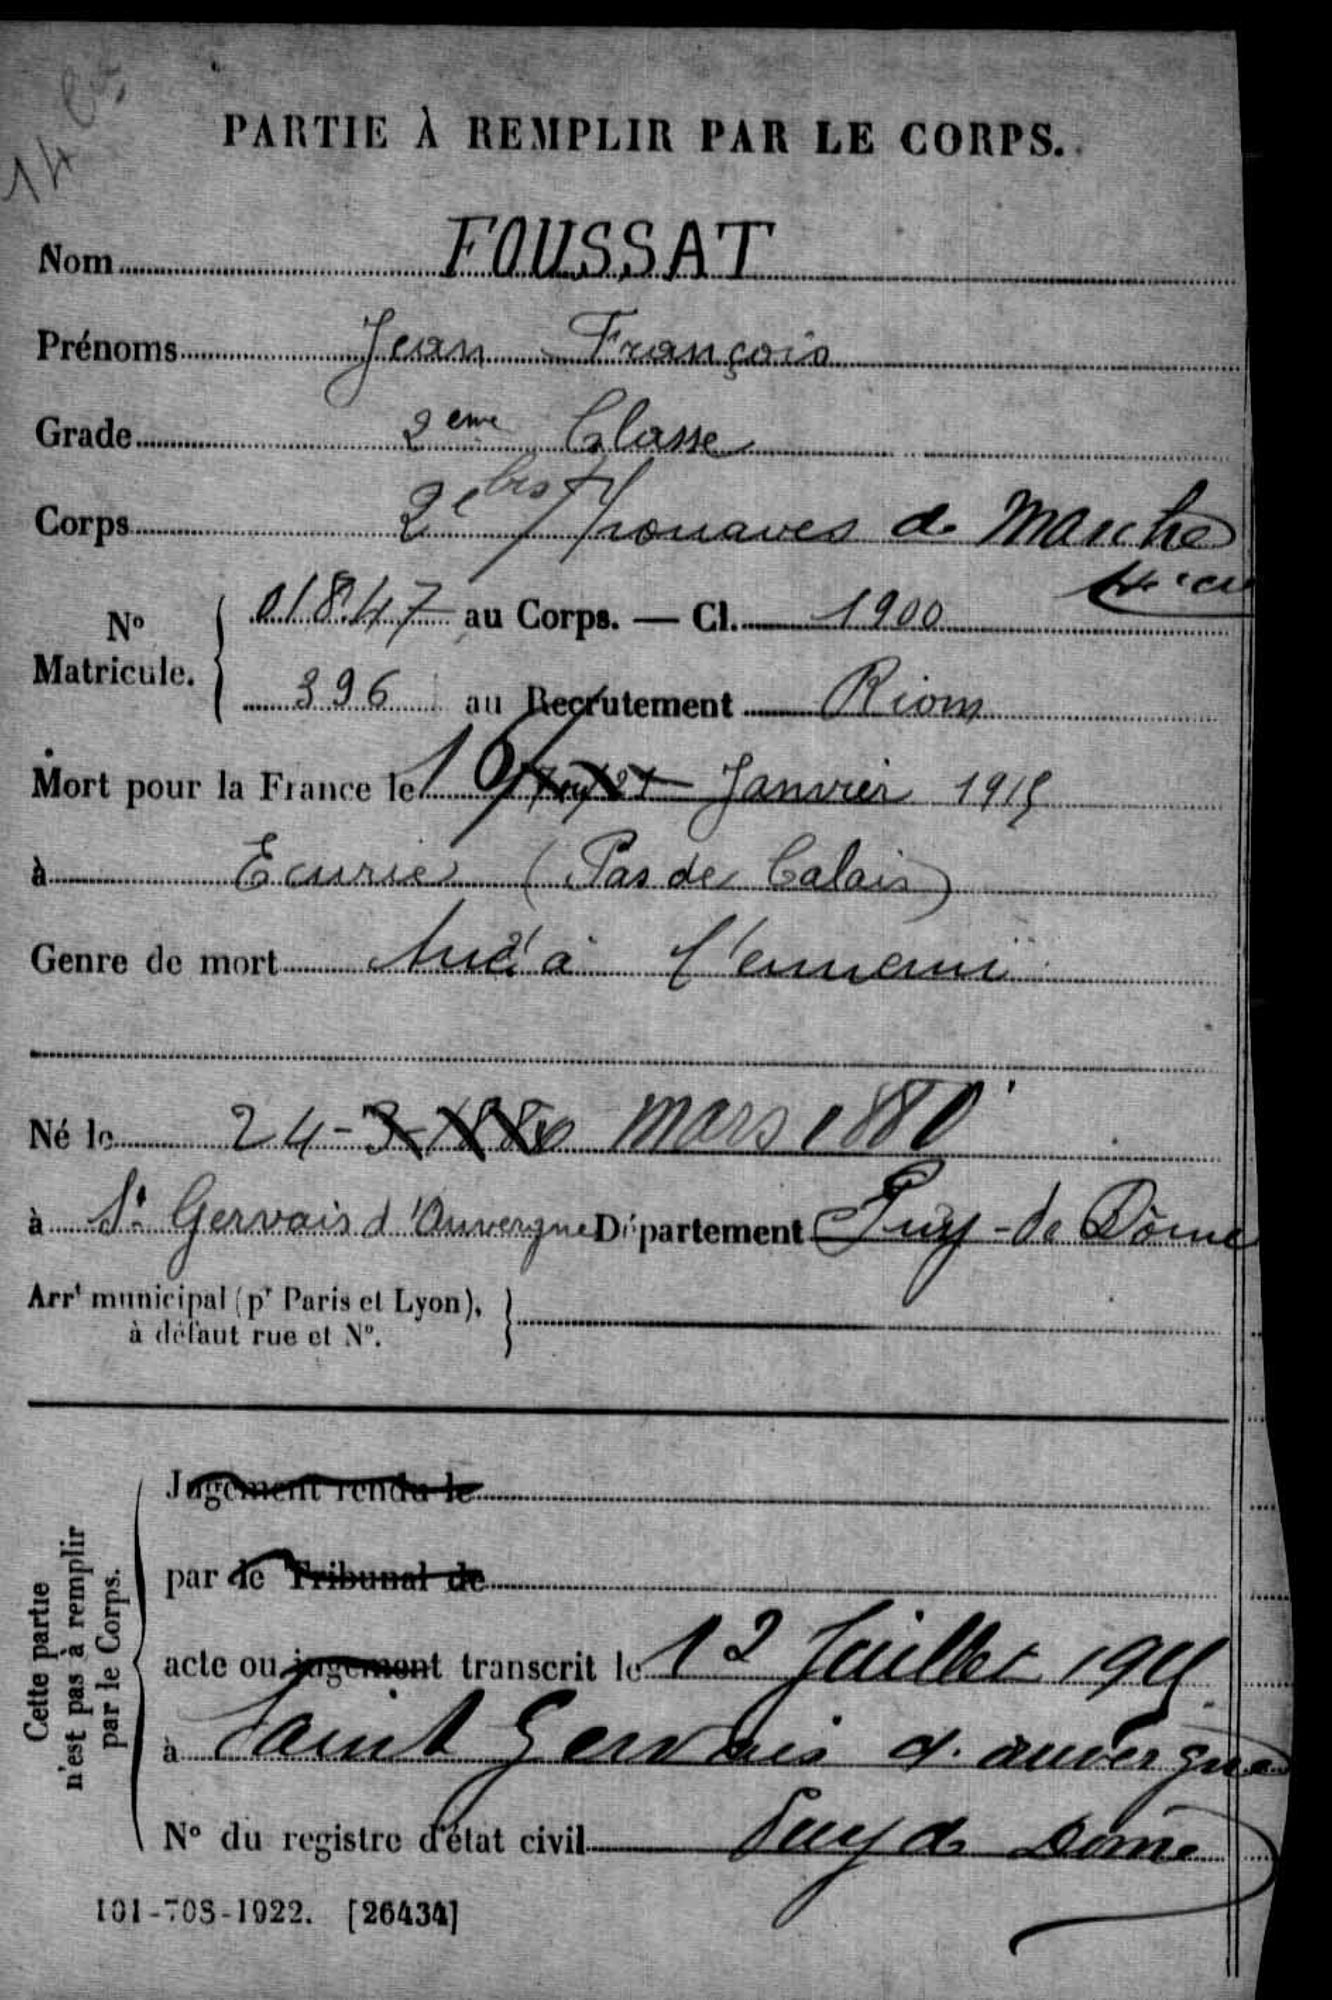 14
PARTIE À REMPLIR PAR LE CORPS.
Nom FOUSSAT
Prénoms Jean François
Grade 2eme Classe
Corps 2e bis Zouaves de Marche
4e cie
Nº Matricule. 01847 au Corps. — Cl. 1900
396 au Recrutement Riom
Mort pour la France le 16 Janvier 1915
à Ecurie (Pas de Calais)
Genre de mort tué à l'ennemi
Né le 24-3-1880 mars 1880
à St Gervais d'Auvergne Département Puy-de Dôme
Arrt municipal (pr Paris et Lyon),
à défaut rue et Nº.
Cette partie
n'est pas à remplir
par le Corps.
Jugement rendu le
par le Tribunal de
acte ou jugement transcrit le 12 Juillet 1915
à Saint Gervais d. auvergne
Nº du registre d'état civil Puy de Dôme
101-708-1922. [26434]